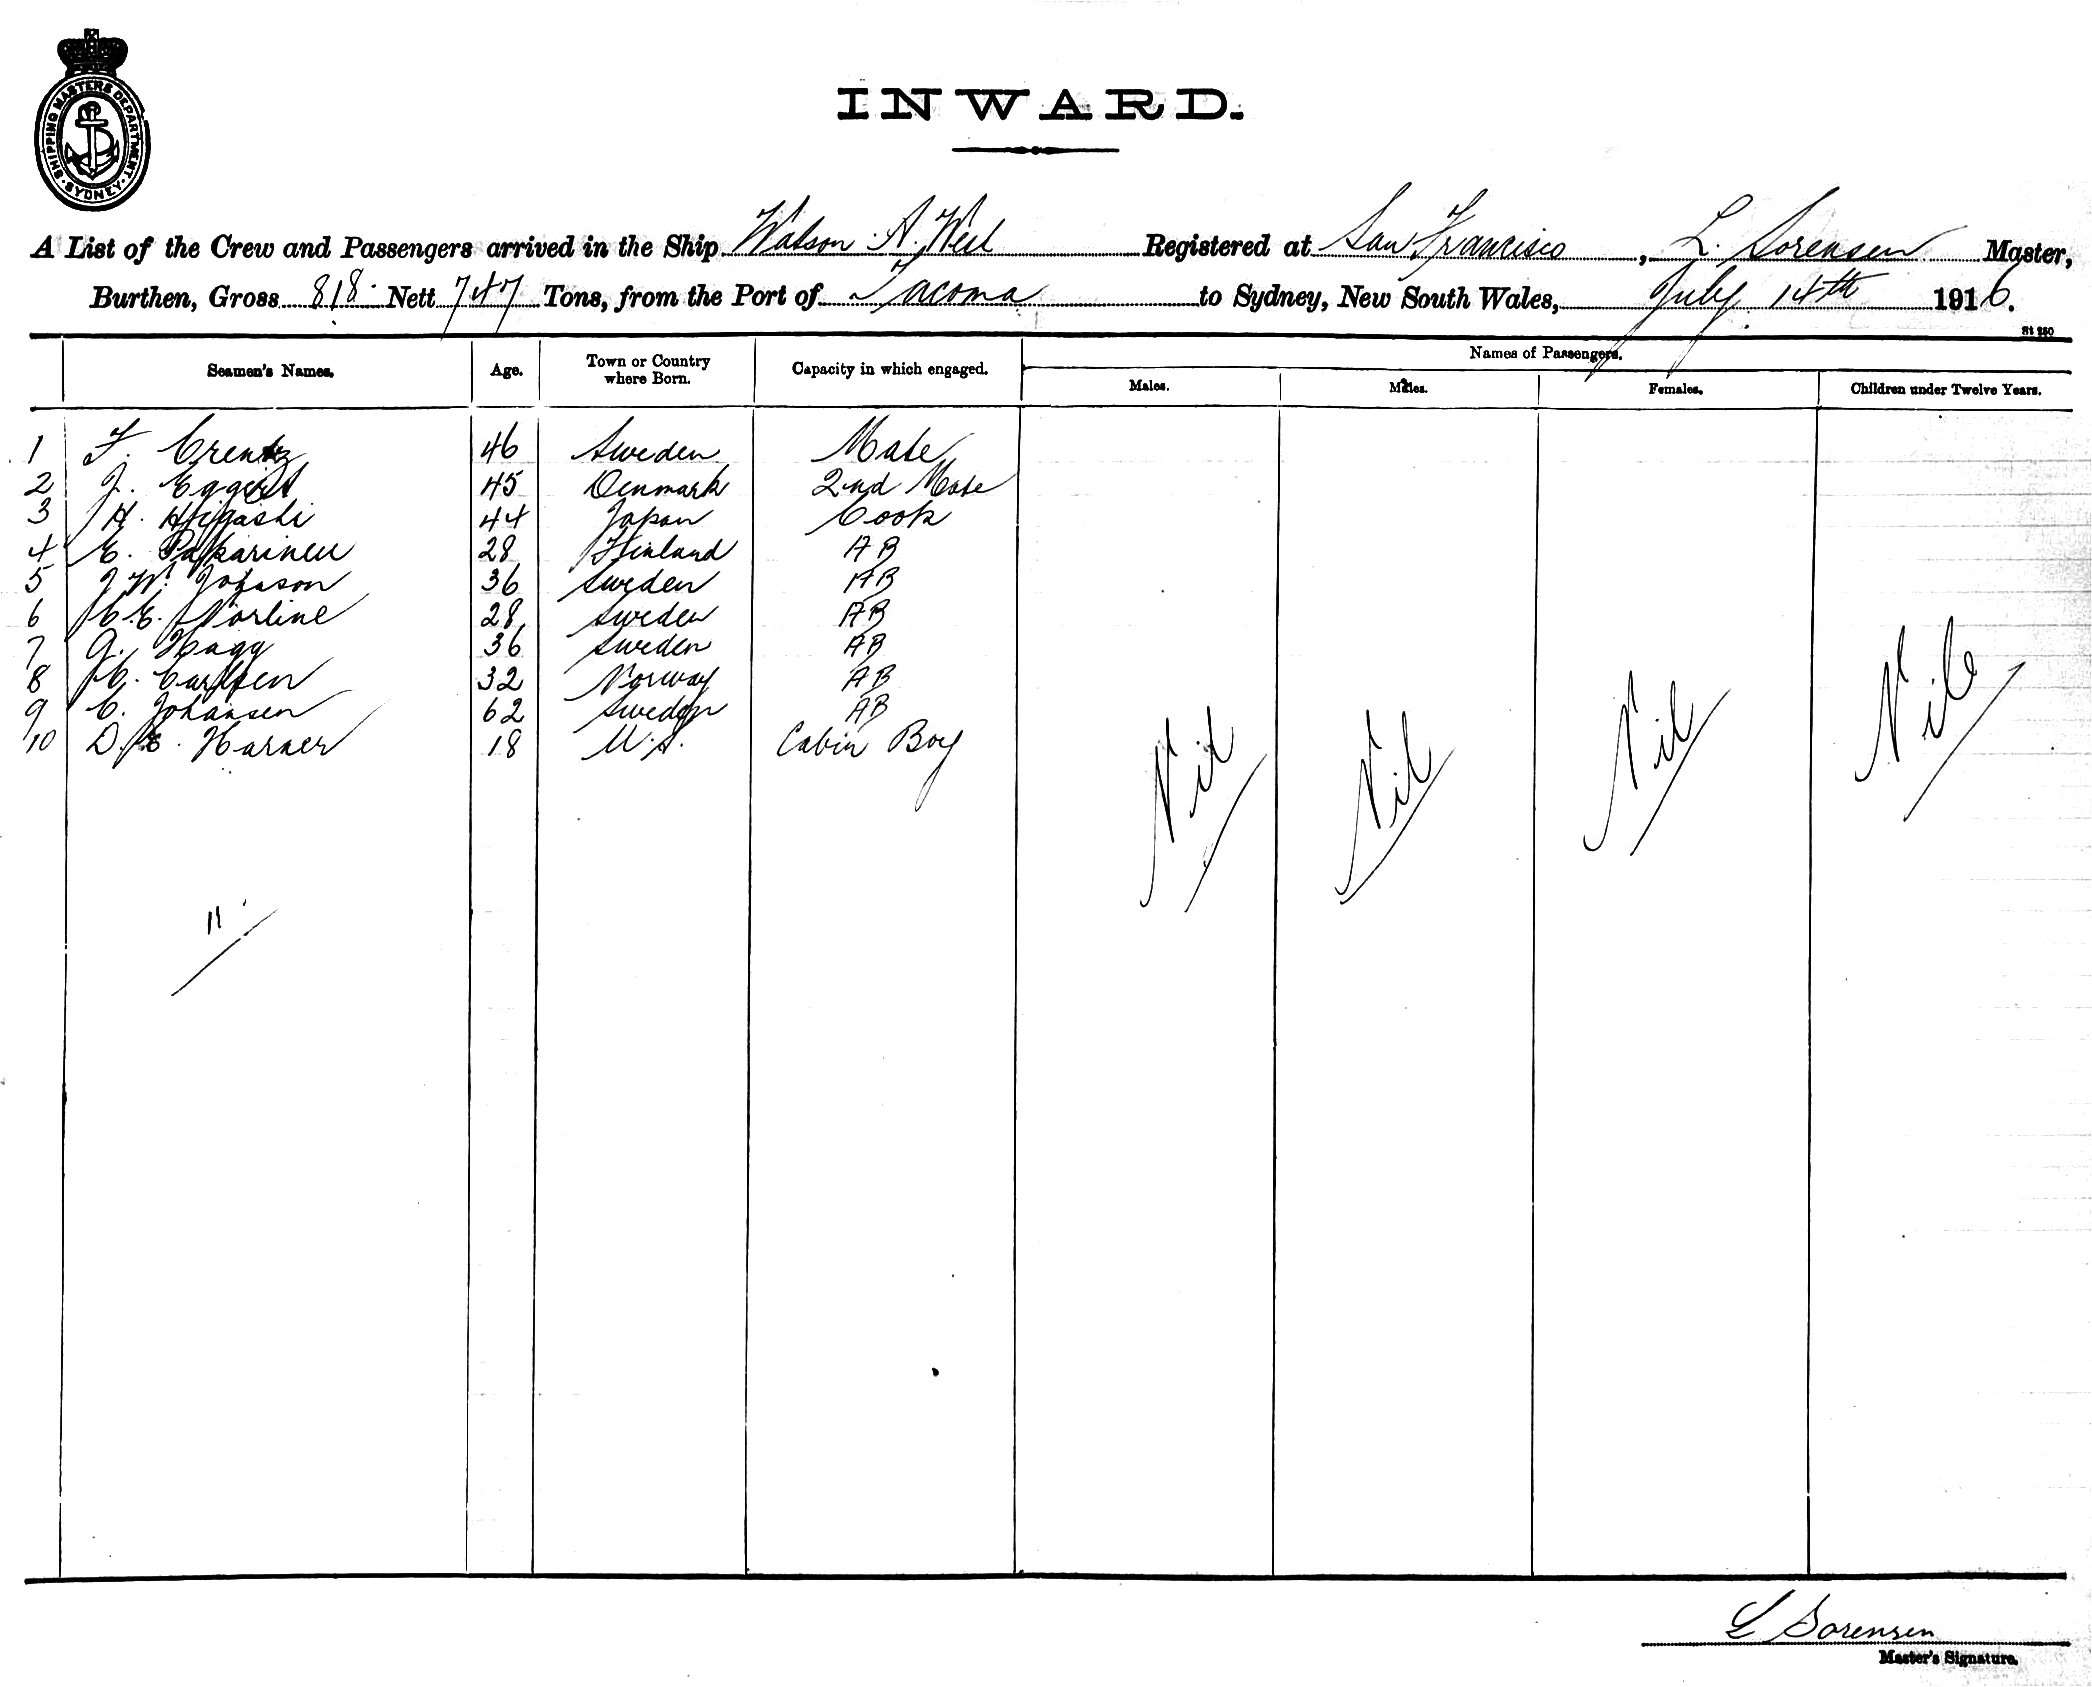 SHIPPING MASTERS DEPARTMENT · SYDNEY ·
INWARD.
A List of the Crew and Passengers arrived in the Ship Watson A. West Registered at San Francisco, L. Sorensen Master,
Burthen, Gross 818 Nett 747 Tons, from the Port of Tacoma to Sydney, New South Wales, July 14th 1916.
St 250
Seamen's Names. Age. Town or Country where Born. Capacity in which engaged. Names of Passengers.
Males. Males. Females. Children under Twelve Years.
1 F. Crentz 46 Sweden Mate
2 J. Eggert 45 Denmark 2nd Mate
3 H. Higashi 44 Japan Cook
4 E. Pakarinen 28 Finland AB
5 J. W. Johnson 36 Sweden AB
6 C. E. Norline 28 Sweden AB
7 G. Hagg 36 Sweden AB
8 C. Carlsen 32 Norway AB
9 C. Johansen 62 Sweden AB
10 D. Harner 18 U.S. Cabin Boy
Nil Nil Nil Nil
11
L Sorensen
Master's Signature.